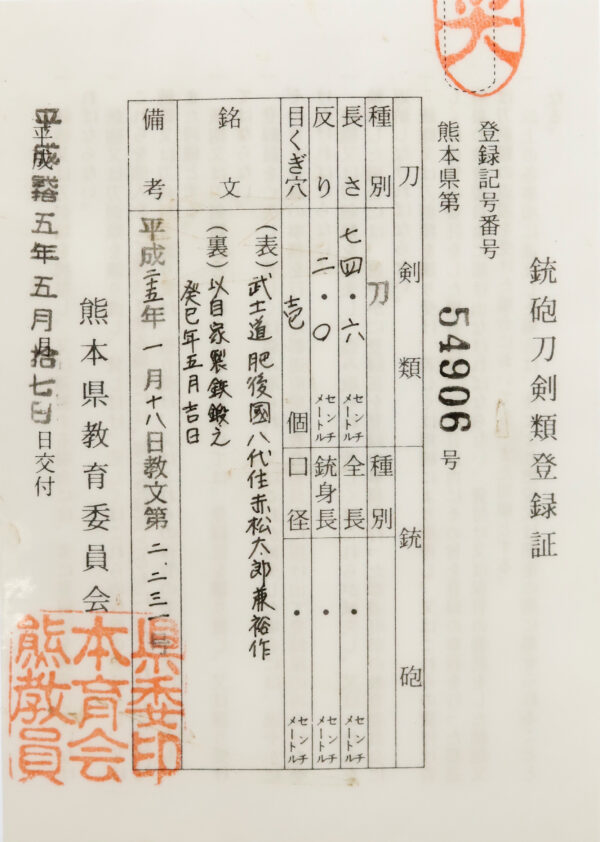 銃砲刀剣類登録証
登録記号番号
熊本県第 54906 号
刀剣類 銃砲
種別 刀 種別
長さ 七四・六 センチメートル 全長 ・ センチメートル
反り 二・〇 センチメートル 銃身長 ・ センチメートル
目くぎ穴 壱 個 口径 ・ センチメートル
銘文
(表)武士道肥後國八代住赤松太郎兼裕作
(裏)以自家製鉄鍛之
癸巳年五月吉日
備考 平成二五年一月十八日教文第二、二三一号
熊本県教育委員会
平成 五年五月拾七日 日交付
県委印
本育会
熊教員